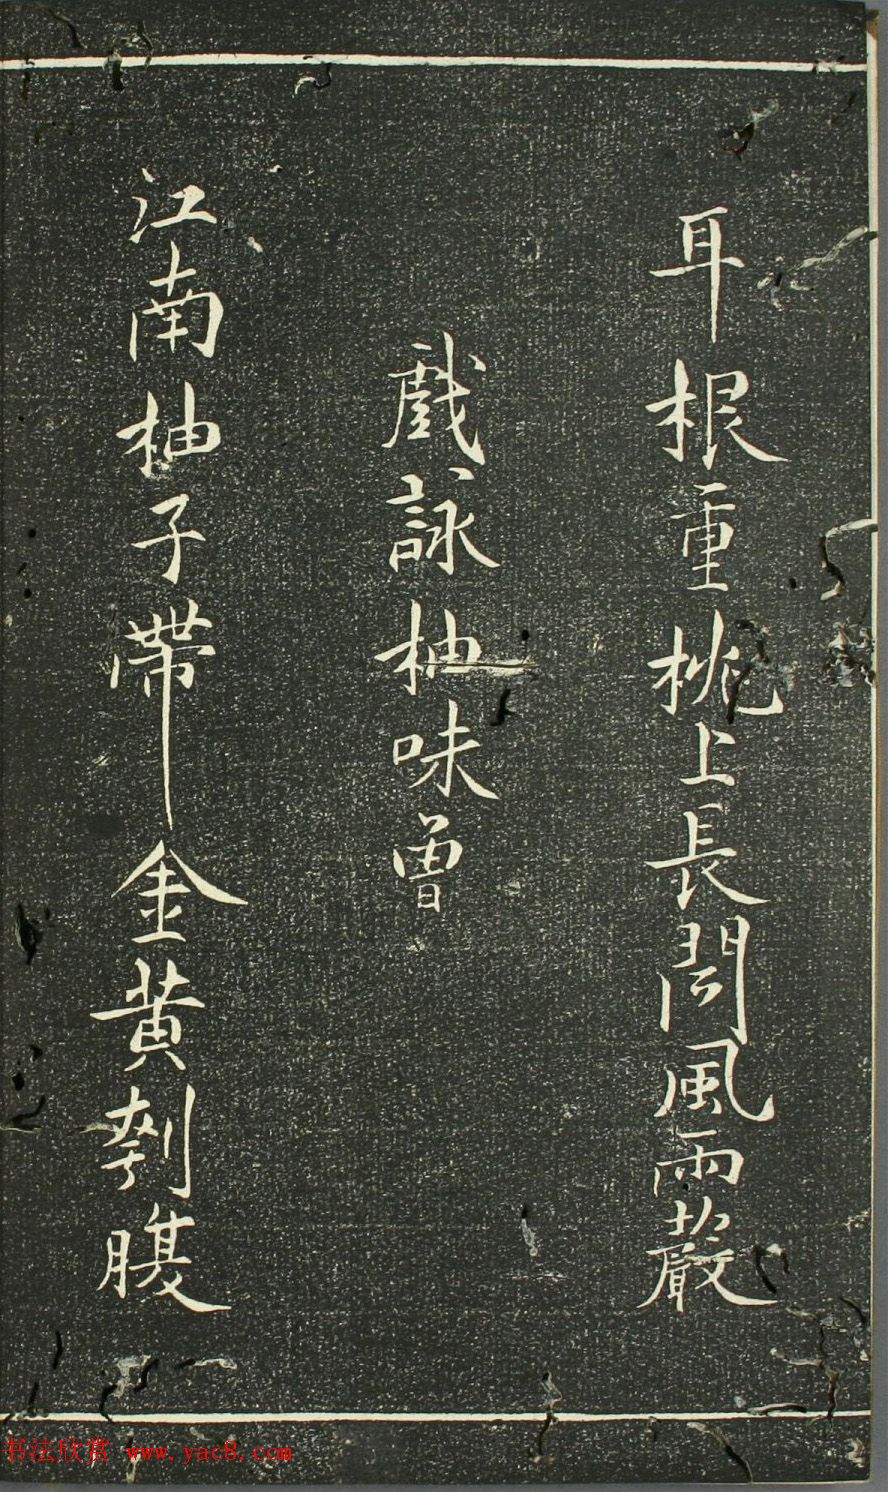 耳根重枕上長聞風雨聲
戲詠柚味曾
江南柚子帶金黄刳腹
书法欣赏 www.yac8.com